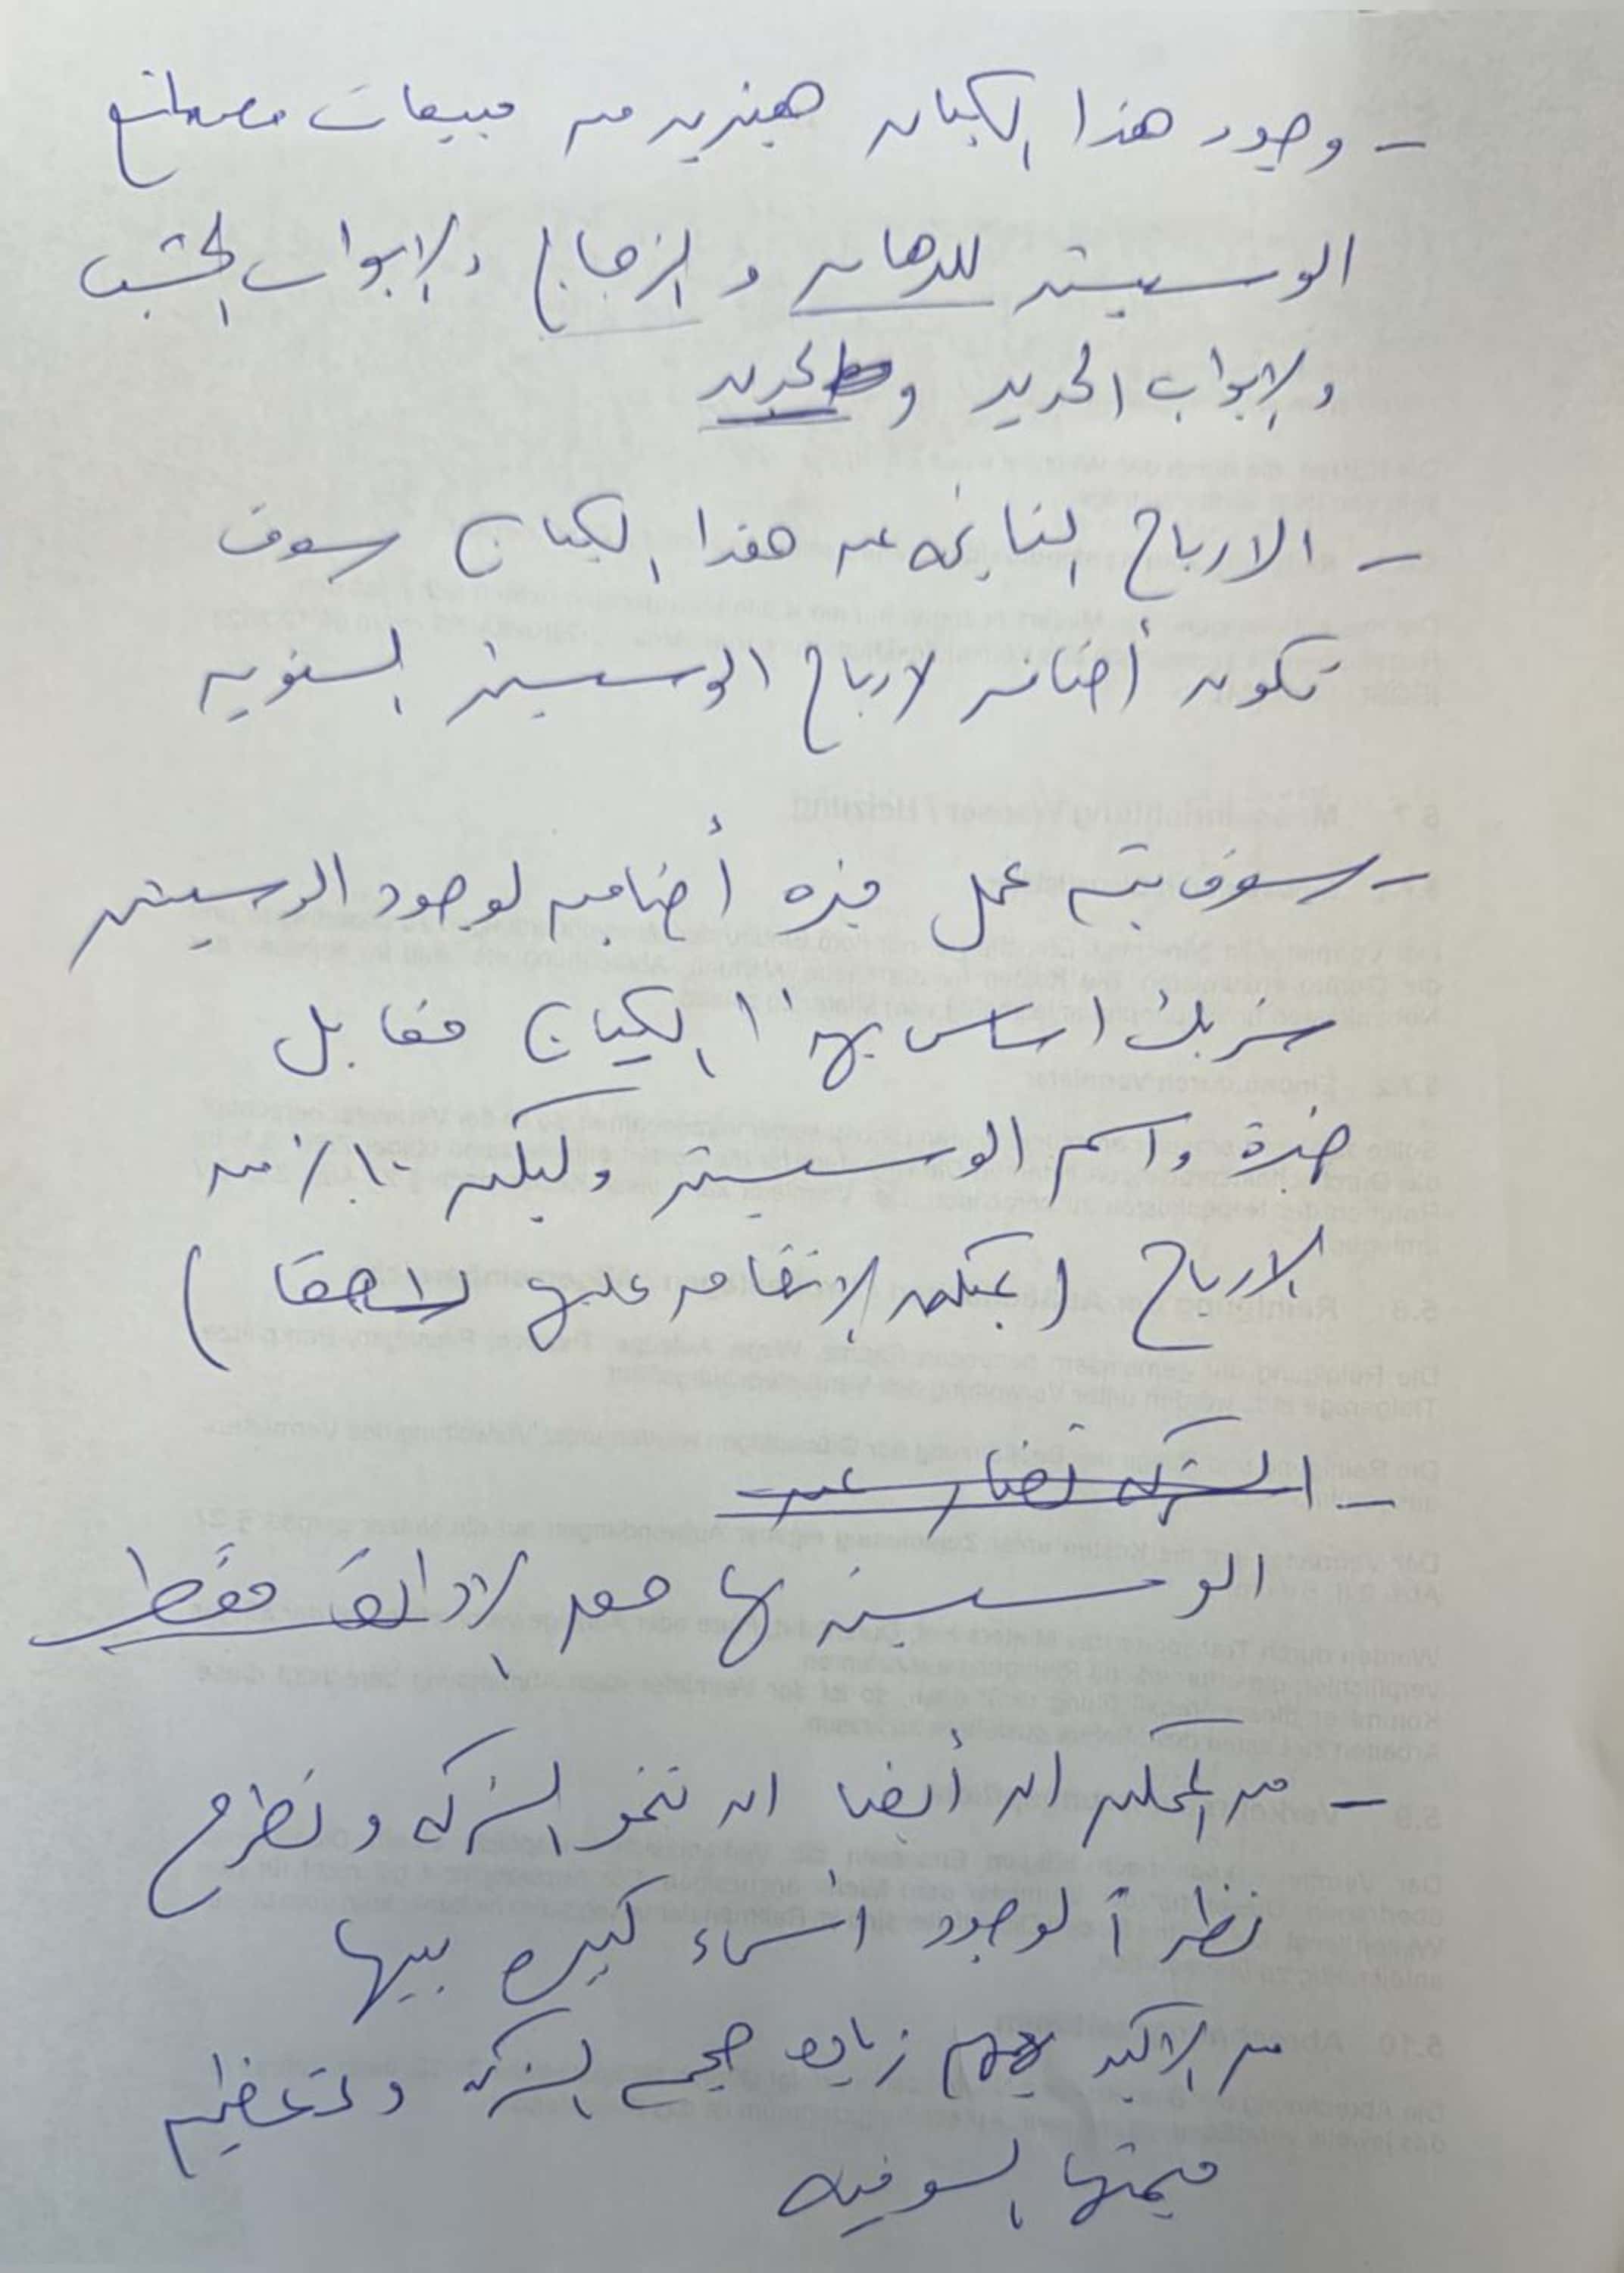 - وجود هذا الكيان هيزيد من مبيعات مصانع
الوسيتر للدهان و الزجاج والابواب الخشب
والابواب الحديد و الحديد
- الارباح الناتجه عن هذا الكيان سوف
تكون أضافه لارباح الوسيتر السنويه
- سوف يتم عمل ميزه أضافيه لوجود الوسيتر
شريك اساس بهذا الكيان مقابل
خبرة واسم الوسيتر وليكن ١٠٪ من
الارباح (يمكن الاتفاق عليها لاحقا)
- الشركه تضار عن
الوسيتر لها حق الاداره فقط
- من الممكن ان أيضا ان تنمو الشركه وتطرح
نظراً لوجود اسماء كبيره بيها
من الاكيد زياده حجم الشركه وتعظيم
قيمتها السوقيه